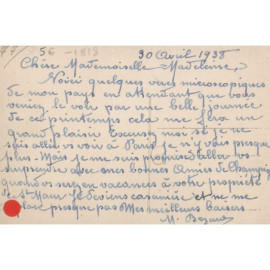 56 - 1813
30 Avril 1938
Chère Mademoiselle Madeleine,
Voici quelques vues microscopiques
de mon pays en attendant que vous
veniez le voir par une belle journée
de ce printemps cela me fera un
grand plaisir Excusez moi si je ne
suis allée vs voir à Paris je n'y vais presque
plus. Mais je me suis promis d'aller vs
surprendre avec mes bonnes Amies de Champigny
quand vs serez en vacances à votre propriété
de St Maur Je deviens casanière et ne me
presque pas Mes meilleurs baisers
M.